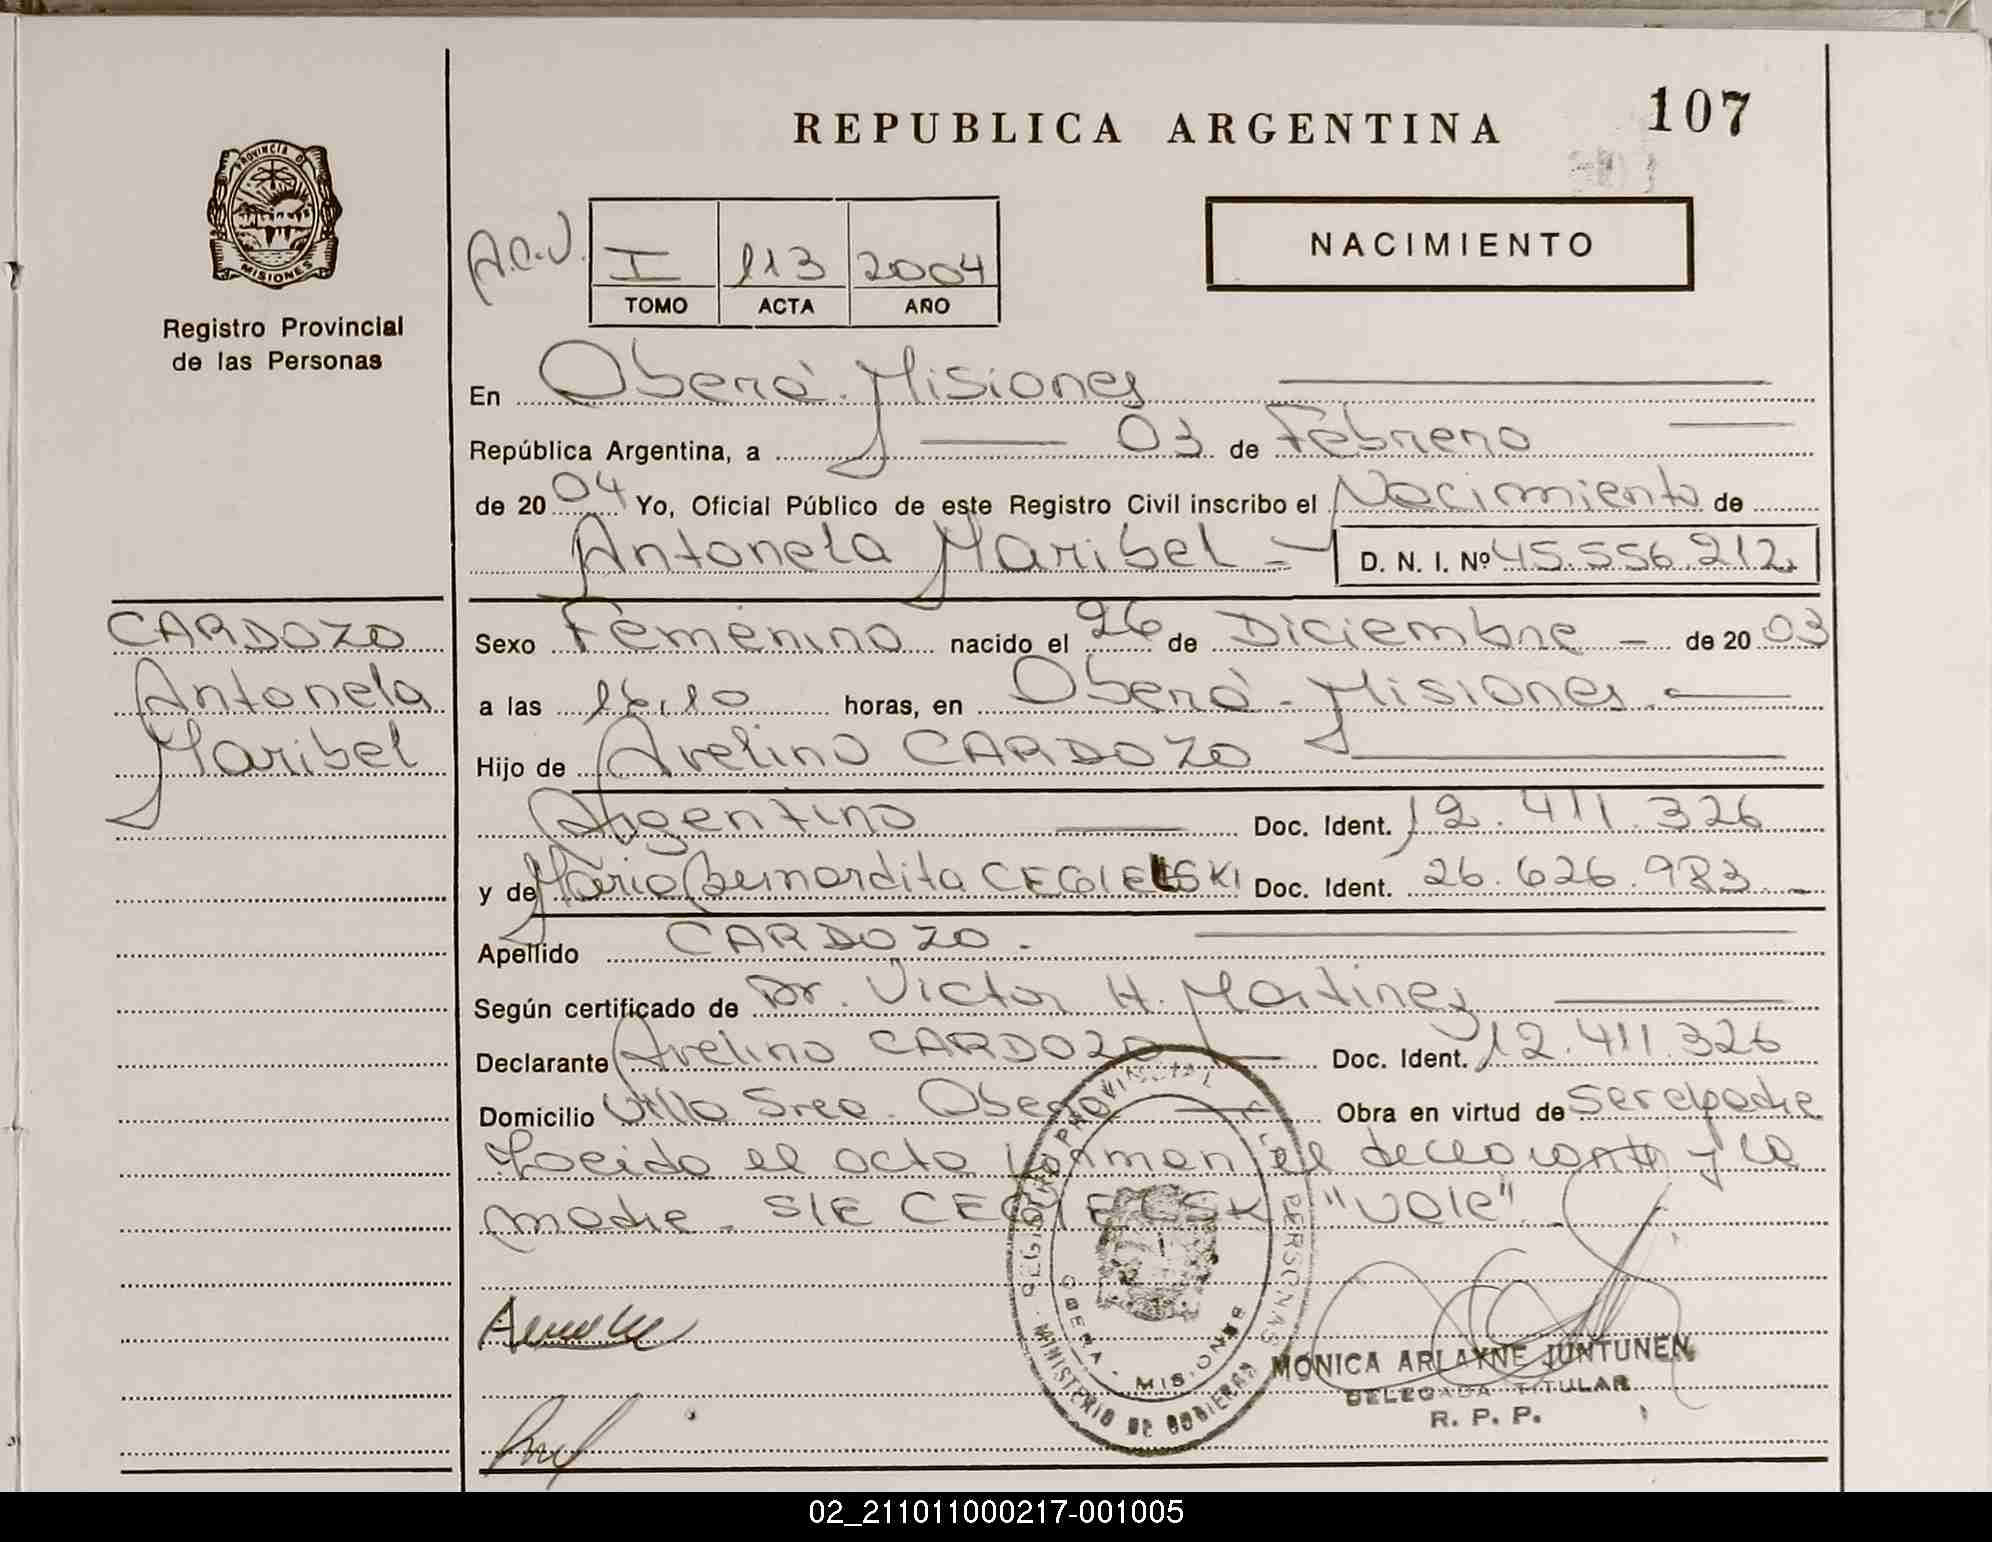 107
REPUBLICA ARGENTINA
PROVINCIA D
MISIONES
Registro Provincial
de las Personas
NACIMIENTO
A.C.V. I 113 2004
TOMO ACTA AÑO
En Oberá - Misiones
República Argentina, a 03 de Febrero
de 2004 Yo, Oficial Público de este Registro Civil inscribo el Nacimiento de
Antonela Maribel = D. N. I. Nº 45.556.212
CARDOZO
Antonela
Maribel
Sexo Femenino nacido el 26 de Diciembre - de 2003
a las horas, en Oberá - Misiones
Hijo de Avelino CARDOZO
Argentino Doc. Ident. 12.411.326
y de Maria Bernardita CEGIELSKI Doc. Ident. 26.626.983
Apellido CARDOZO.
Según certificado de Dr. Victor H. Martinez
Declarante Avelino CARDOZO Doc. Ident. 12.411.326
Domicilio Villa Oberá Obra en virtud de ser el padre
Leida el acta Firman el declarante y la
madre. S/E CEGIELSKI "Vale"
REGISTRO PROVINCIAL PERSONAS
OBERA - MISIONES
MINISTERIO DE GOBIERNO
MONICA ARLAYNE JUNTUNEN
DELEGADA TITULAR
R. P. P.
02_211011000217-001005